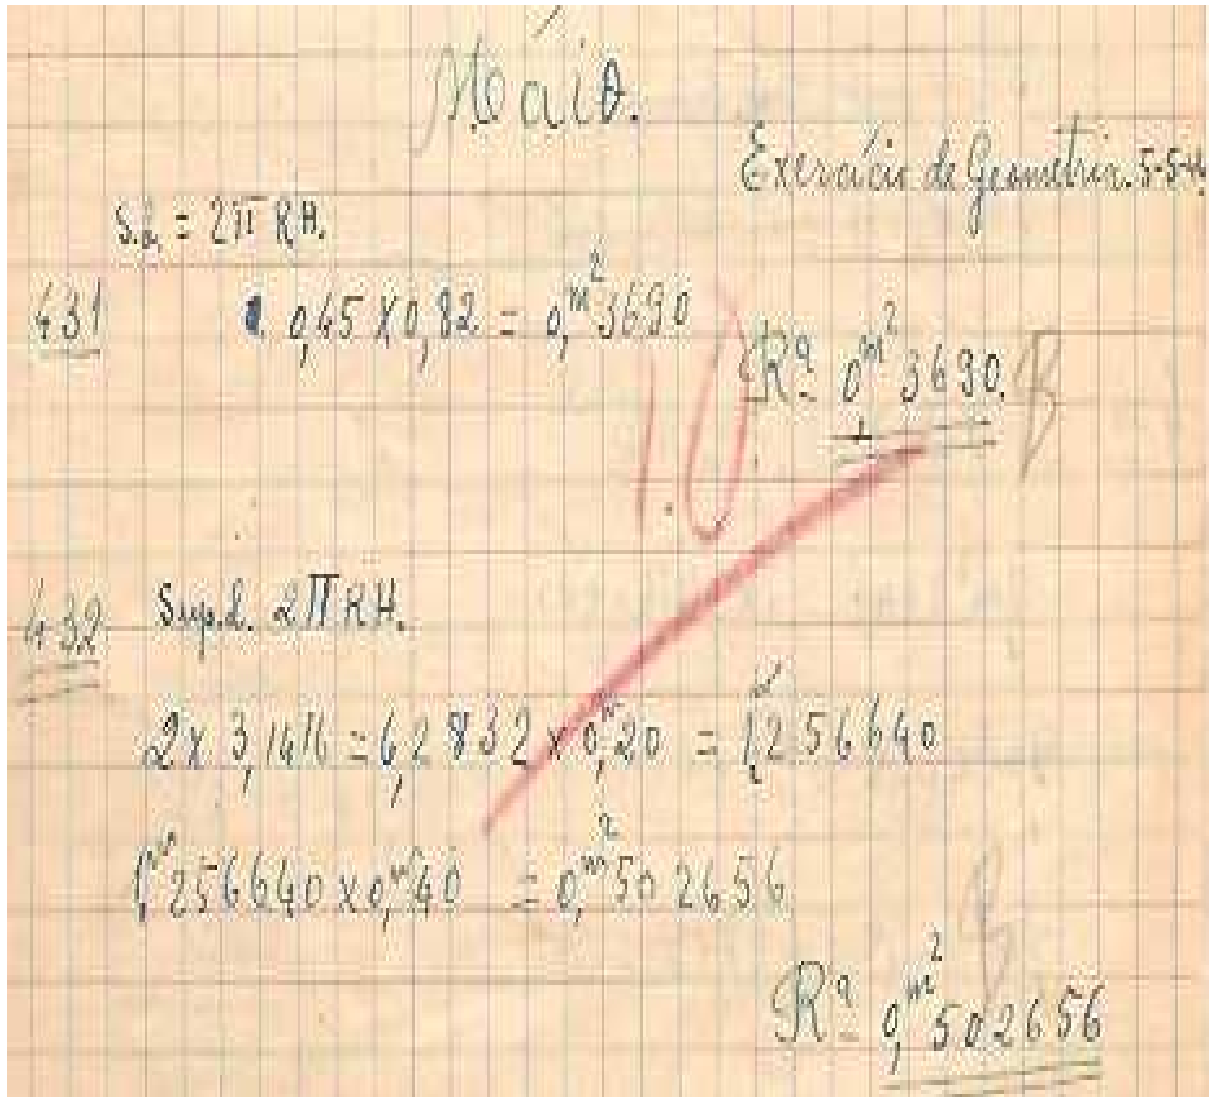 Máio.
Exercício de Geometria. 5-5-44
S.L. = 2π RH.
431 0,45 X 0,82 = 0,m²3690
10
Rª 0,m² 3690. B
432 Sup.L. 2π RH.
2 x 3,1416 = 6,2832 x 0,m20 = 1,m256640
1,m256640 x 0,m40 = 0,m²502656
Rª 0,m²502656